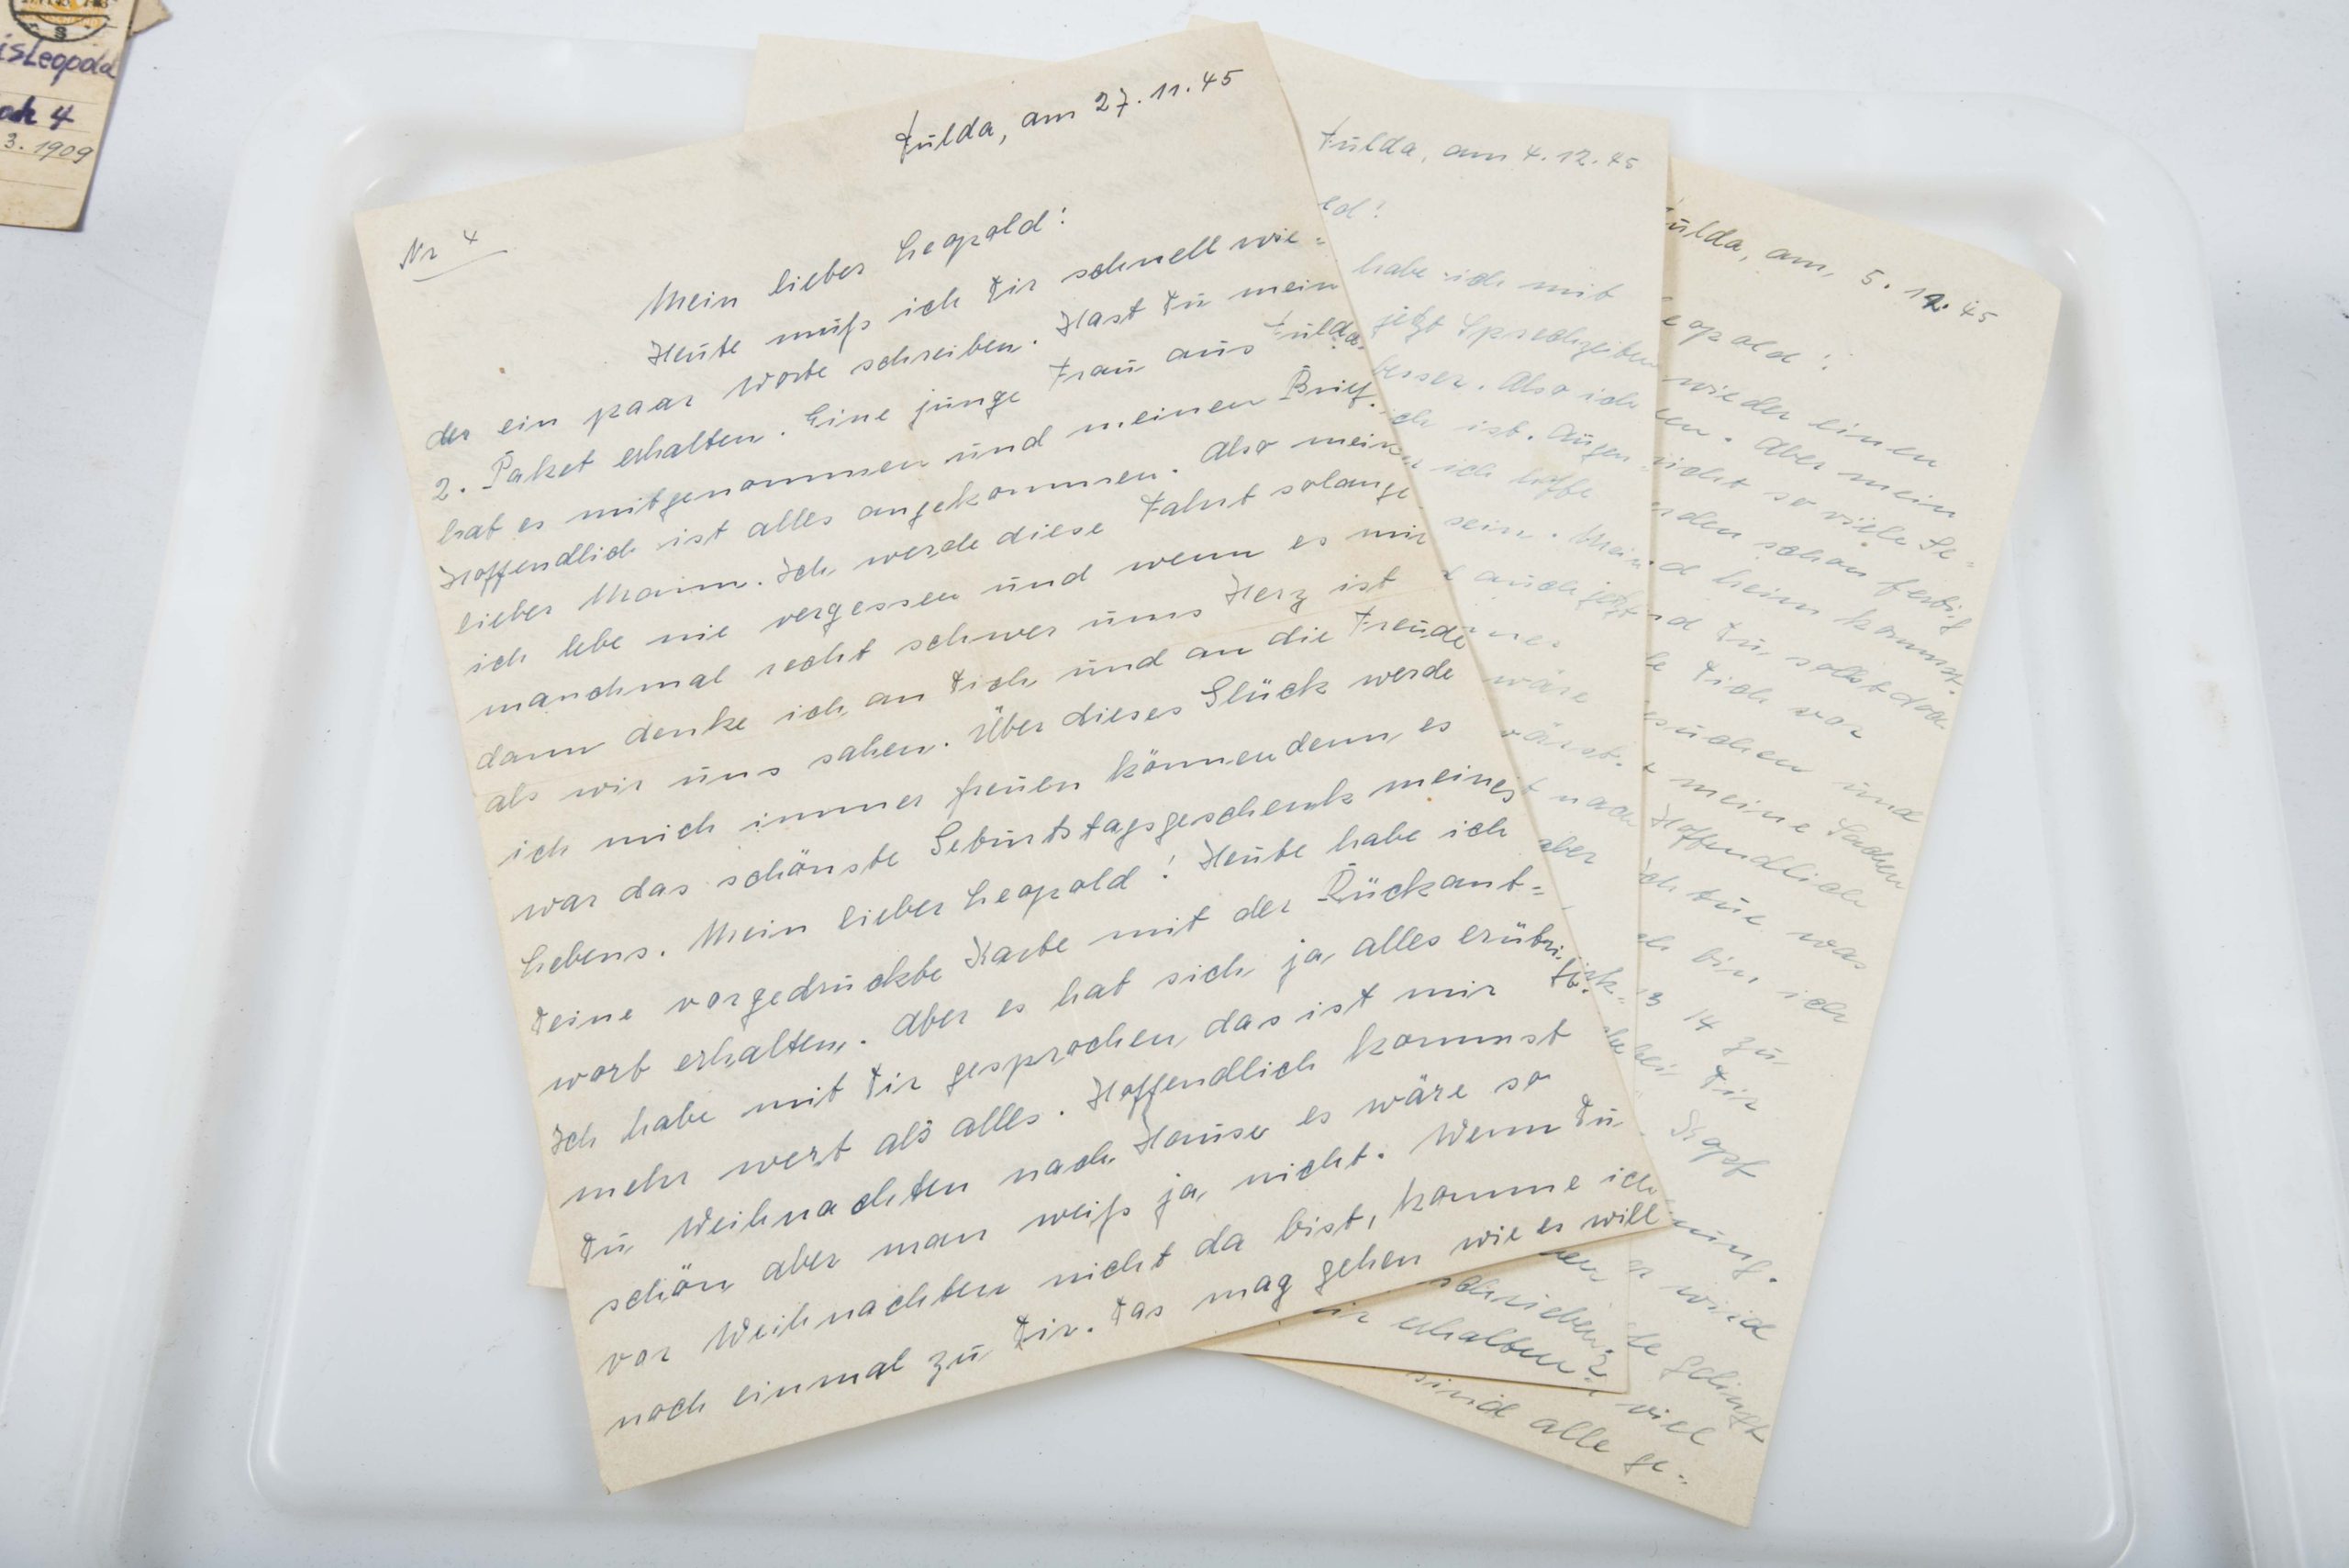 isLeopold
4
3. 1909
Nr 4
Fulda, am 27.11.45
Mein lieber Leopold!
Heute muß ich Dir schnell wie=
der ein paar Worte schreiben. Hast Du mein
2. Paket erhalten. Eine junge Frau aus Fulda
hat es mitgenommen und meinen Brief.
Hoffendlich ist alles angekommen. Also mein
lieber Mann. Ich werde diese Fahrt solange
ich lebe nie vergessen und wenn es mir
manchmal recht schwer ums Herz ist
dann denke ich an Dich und an die Freude
als wir uns sahen. Über dieses Glück werde
ich mich immer freuen können denn es
war das schönste Geburtstagsgeschenk meines
Lebens. Mein lieber Leopold! Heute habe ich
Deine vorgedruckte Karte mit der Rückant=
wort erhalten. Aber es hat sich ja alles erübri.
Ich habe mit Dir gesprochen, das ist mir
mehr wert als alles. Hoffendlich kommst
Du Weihnachten nach Hause es wäre so
schön aber man weiß ja nicht. Wenn Du
vor Weihnachten nicht da bist, komme ich
noch einmal zu Dir. Das mag gehen wie es will
Fulda, am 4.12.45
ld!
habe ich mit
jetzt Sprechzeiten
besser. Also ich
ich ist. Augen=
ich hoffe
sein. Mein
auch jetzt
wäre
wärst.
nach
aber
schrieben
erhalten?
ulda, am, 5. 12. 45
eopold!
wieder einen
en. Aber mein
nicht so viele Ge=
rden schon fertig
d heim kommst.
nd Du sollst doch
le Dich vor
esuchen und
meine Sachen
Hoffendlich
ich tue was
ch bin ich
13 14 zu
bei Dir
Kopf
nung.
wird
te gelingt
viel
sind alle ge=